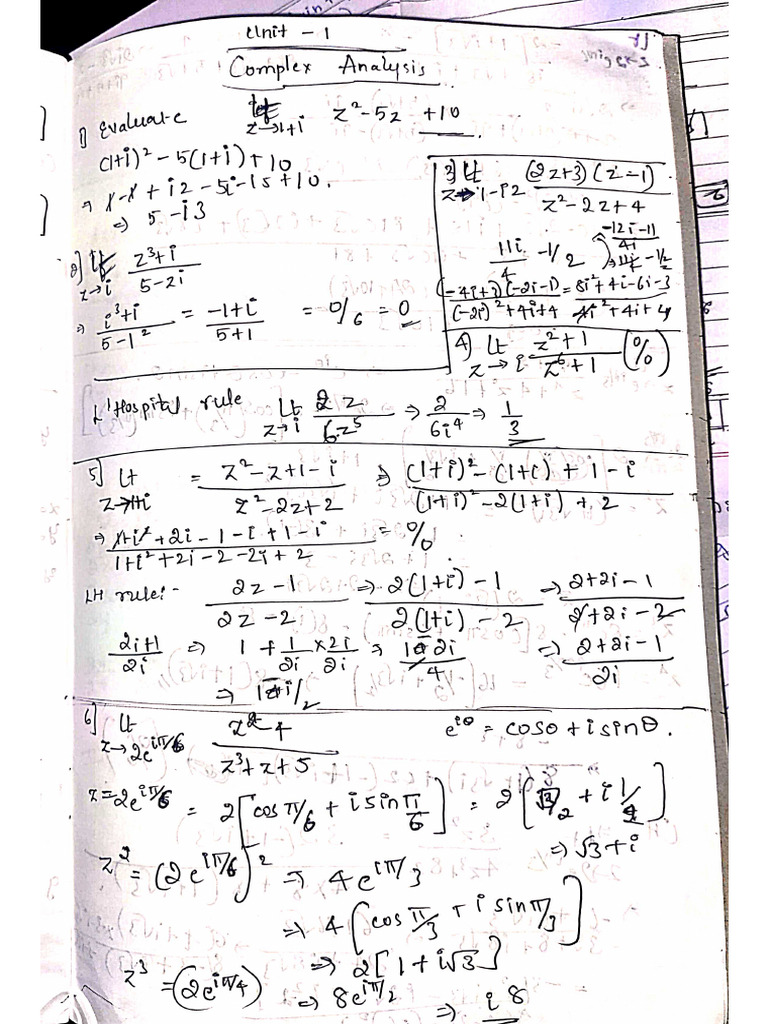 Unit - 1
Complex Analysis
1) Evaluate Lt z→1+i z² - 5z + 10
(1+i)² - 5(1+i) + 10
⇒ 1 - 1 + i2 - 5i - 15 + 10.
⇒ 5 - i3
2) Lt z→i z³+i / 5-zi
⇒ i³+i / 5-i² = -1+i / 5+1 = 0/6 = 0
3) Lt z→1-i2 (2z+3)(z-1) / z²-2z+4
-12i-11 / 4i
11i / 4 - 1/2
(-4i+3)(-2i-1) / (-2i)²+4i+4 = 8i²+4i-6i-3 / 4i²+4i+4
4) Lt z→i z²+1 / z⁶+1 (0/0)
L'Hospital rule Lt z→i 2z / 6z⁵ ⇒ 2 / 6i⁴ ⇒ 1/3
5) Lt z→1+i = z²-z+1-i / z²-2z+2 ⇒ (1+i)²-(1+i)+1-i / (1+i)²-2(1+i)+2
⇒ 1+i²+2i-1-i+1-i / 1+i²+2i-2-2i+2 = 0/0
LH rule:- 2z-1 / 2z-2 ⇒ 2(1+i)-1 / 2(1+i)-2 ⇒ 2+2i-1 / 2+2i-2
2i+1 / 2i ⇒ 1 + 1/2i × 2i/2i ⇒ 2i / 4 ⇒ 2+2i-1 / 2i
⇒ 1 i/2
6) Lt z→2e^iπ/6 z²-4 / z³+z+5 e^iθ = cosθ + i sinθ.
z = 2e^iπ/6 = 2[cos π/6 + i sin π/6] = 2[√3/2 + i 1/2]
⇒ √3 + i
z² = (2e^iπ/6)² ⇒ 4e^iπ/3
⇒ 4[cos π/3 + i sin π/3]
⇒ 2[1 + i√3]
z³ = (2e^iπ/4) ⇒ 8e^iπ/2 ⇒ i8